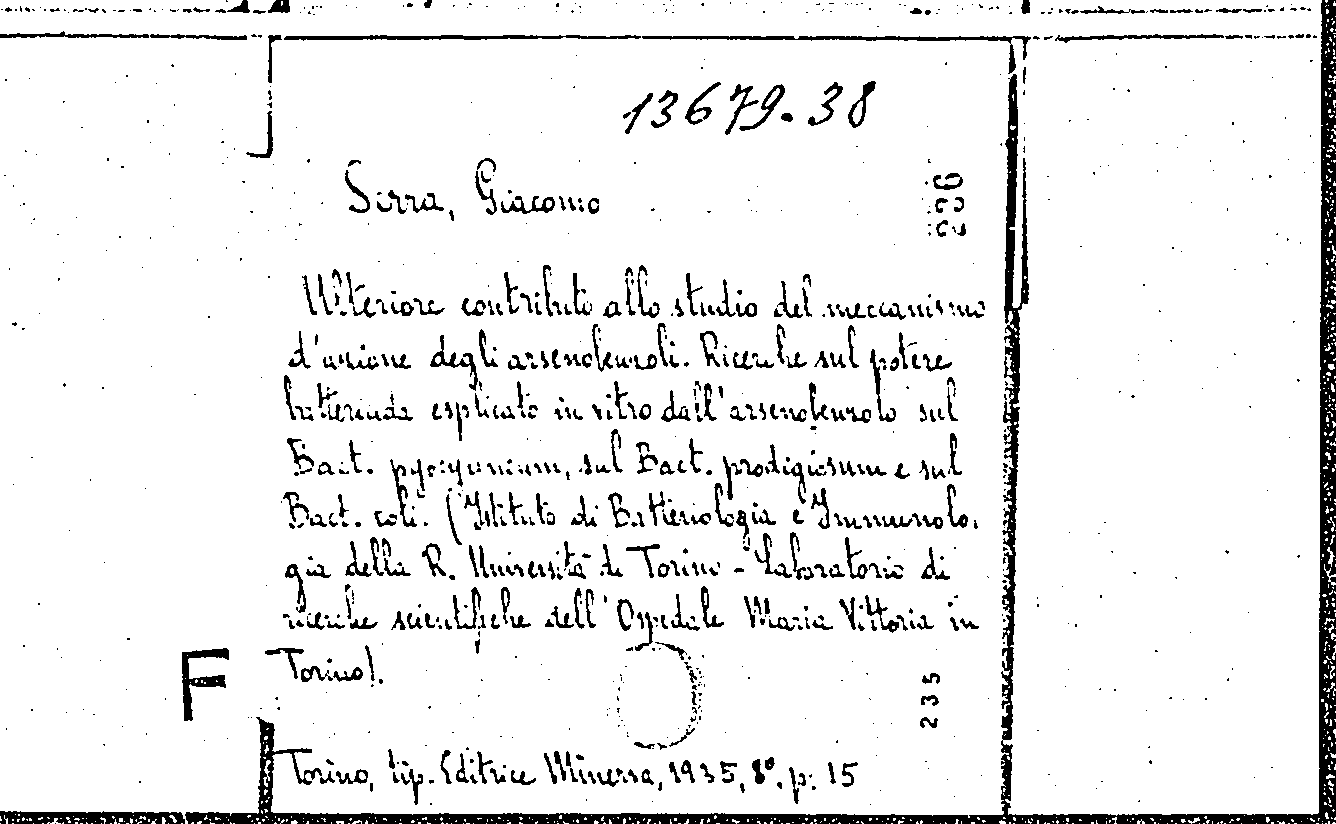 13679.38
Serra, Giacomo
236
Ulteriore contributo allo studio del meccanismo
d'azione degli arsenobenzoli. Ricerche sul potere
battericida esplicato in vitro dall'arsenobenzolo sul
Bact. pyocyaneum, sul Bact. prodigiosum e sul
Bact. coli. (Istituto di Batteriologia e Immunolo-
gia della R. Università di Torino - Laboratorio di
ricerche scientifiche dell'Ospedale Maria Vittoria in
Torino).
F
235
Torino, tip. Editrice Minerva, 1935, 8°, p. 15